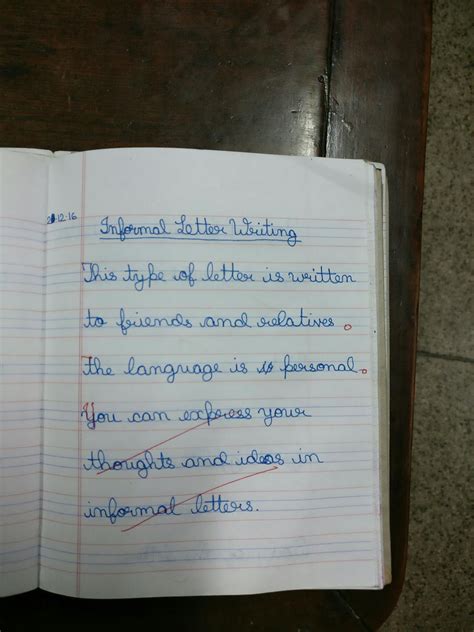 .12.16
Informal Letter Writing
This type of letter is written
to friends and relatives.
The language is personal.
You can express your
thoughts and ideas in
informal letters.